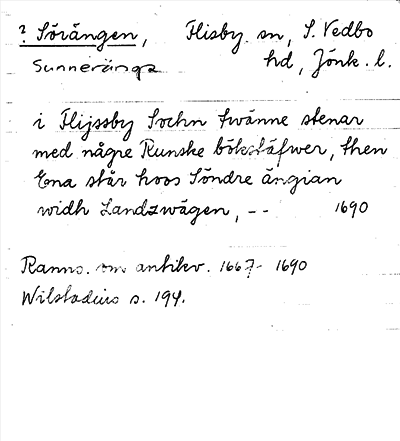 ? Sörängen, Flisby. sn, S. Vedbo
Sunneränga hd, Jönk. l.
i Flijssby Sochn twänne stenar
med någre Runske bökstäfwer, then
Ena står hoos Söndre ängian
widh Landzwägen, -- 1690
Ranns. om antikv. 1667- 1690
Wilstadius s. 194.